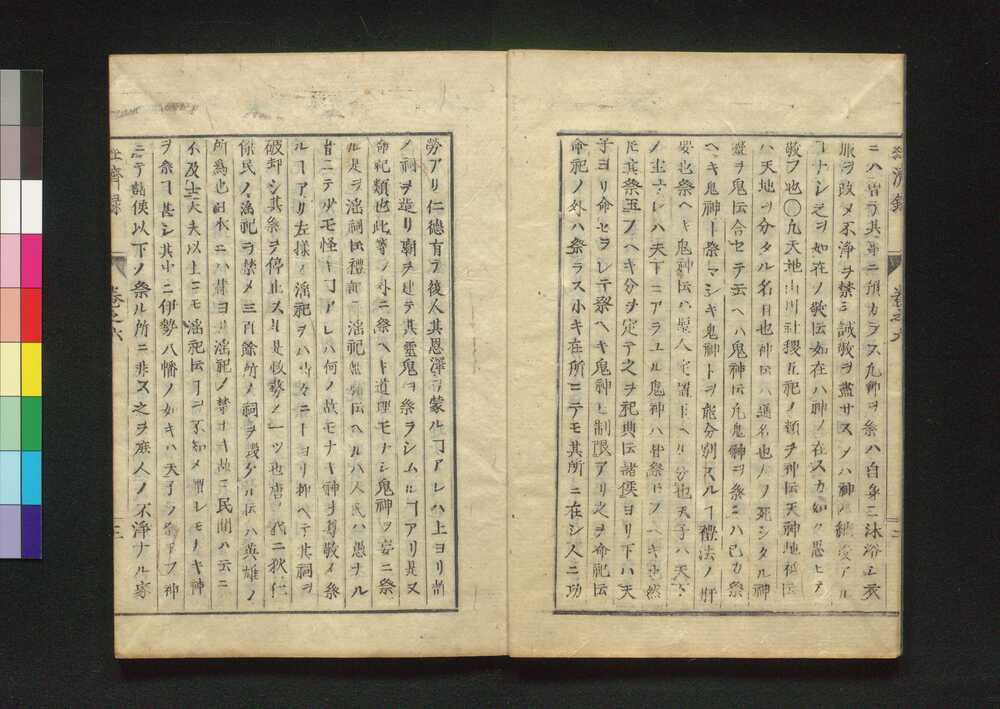 経済録
巻之六
ニハ皆ラ其事ニ預カラス凡神ヲ祭ハ自身ニ沐浴シ衣
服ヲ改メ不浄ヲ禁シ誠敬ヲ盡サスンハ神ノ納受アル
コナシ之ヲ如在ノ敬伝如在ハ神ノ在スカ如ク思ヒテ
敬フ也〇凡天地山川社稷五祀ノ類ヲ神伝天神地祇伝
ハ天地ヲ分タル名目也神伝ハ通名也人ノ死シタル神
ヲ鬼伝合セテ云ヘハ鬼神伝凡鬼神ヲ祭ニハ己カ祭
ヘキ鬼神ト祭マシキ鬼神トヲ能分別スルコ禮法ノ肝
要也祭ヘキ鬼神伝ハ聖人定置玉ヘル分也天子ハ天下
ノ主ナレハ天下ニアラユル鬼神ハ皆祭玉フヘキ也然
𪜈其祭玉フヘキ分ヲ定テ之ヲ祀典伝諸侯ヨリ下ハ天
子ヨリ命セラレテ祭ヘキ鬼神ニ制限アリ之ヲ命祀伝
命祀ノ外ハ祭ラス小キ在所ニテモ其所ニ在シ人ニ功
勞アリ仁德有テ後人其恩澤ヲ蒙ルコアレハ上ヨリ皆
ノ祠ヲ造リ廟ヲ建テ其靈鬼ヲ祭ラシムルコアリ是又
命祀ノ類也此等ノ外ニ祭ヘキ道理モナシ鬼神ヲ妄ニ祭
ル是ヲ淫祠伝禮記ニ淫祀無福伝ヘルハ人民ハ愚ナル
者ニテ少モ怪キコアレハ何ノ故モナキ神ヲ尊敬シ祭
ルコアリ左様ノ淫祀ヲハ時々ニ上ヨリ抑ヘテ其祠ヲ
破却シ其祭ヲ停止スル是政務ノ一ツ也唐ノ代ニ狄仁
傑民ノ淫祀ヲ禁メ三百餘所ノ祠ヲ毀タル伝ハ英雄ノ
所為也日本ニハ昔ヨリ淫祀ノ禁ナキ故ニ民間ハ云ニ
不及士大夫以上ニモ淫祀伝コヲ不知メ謂レモナキ神
ヲ祭コ甚シ其中ニ伊勢八幡ノ如キハ天子ノ祭玉フ神
ニテ諸侯以下ノ祭ル所ニ非ス之ヲ庶人ノ不浄ナル家
経済録
巻之六
三